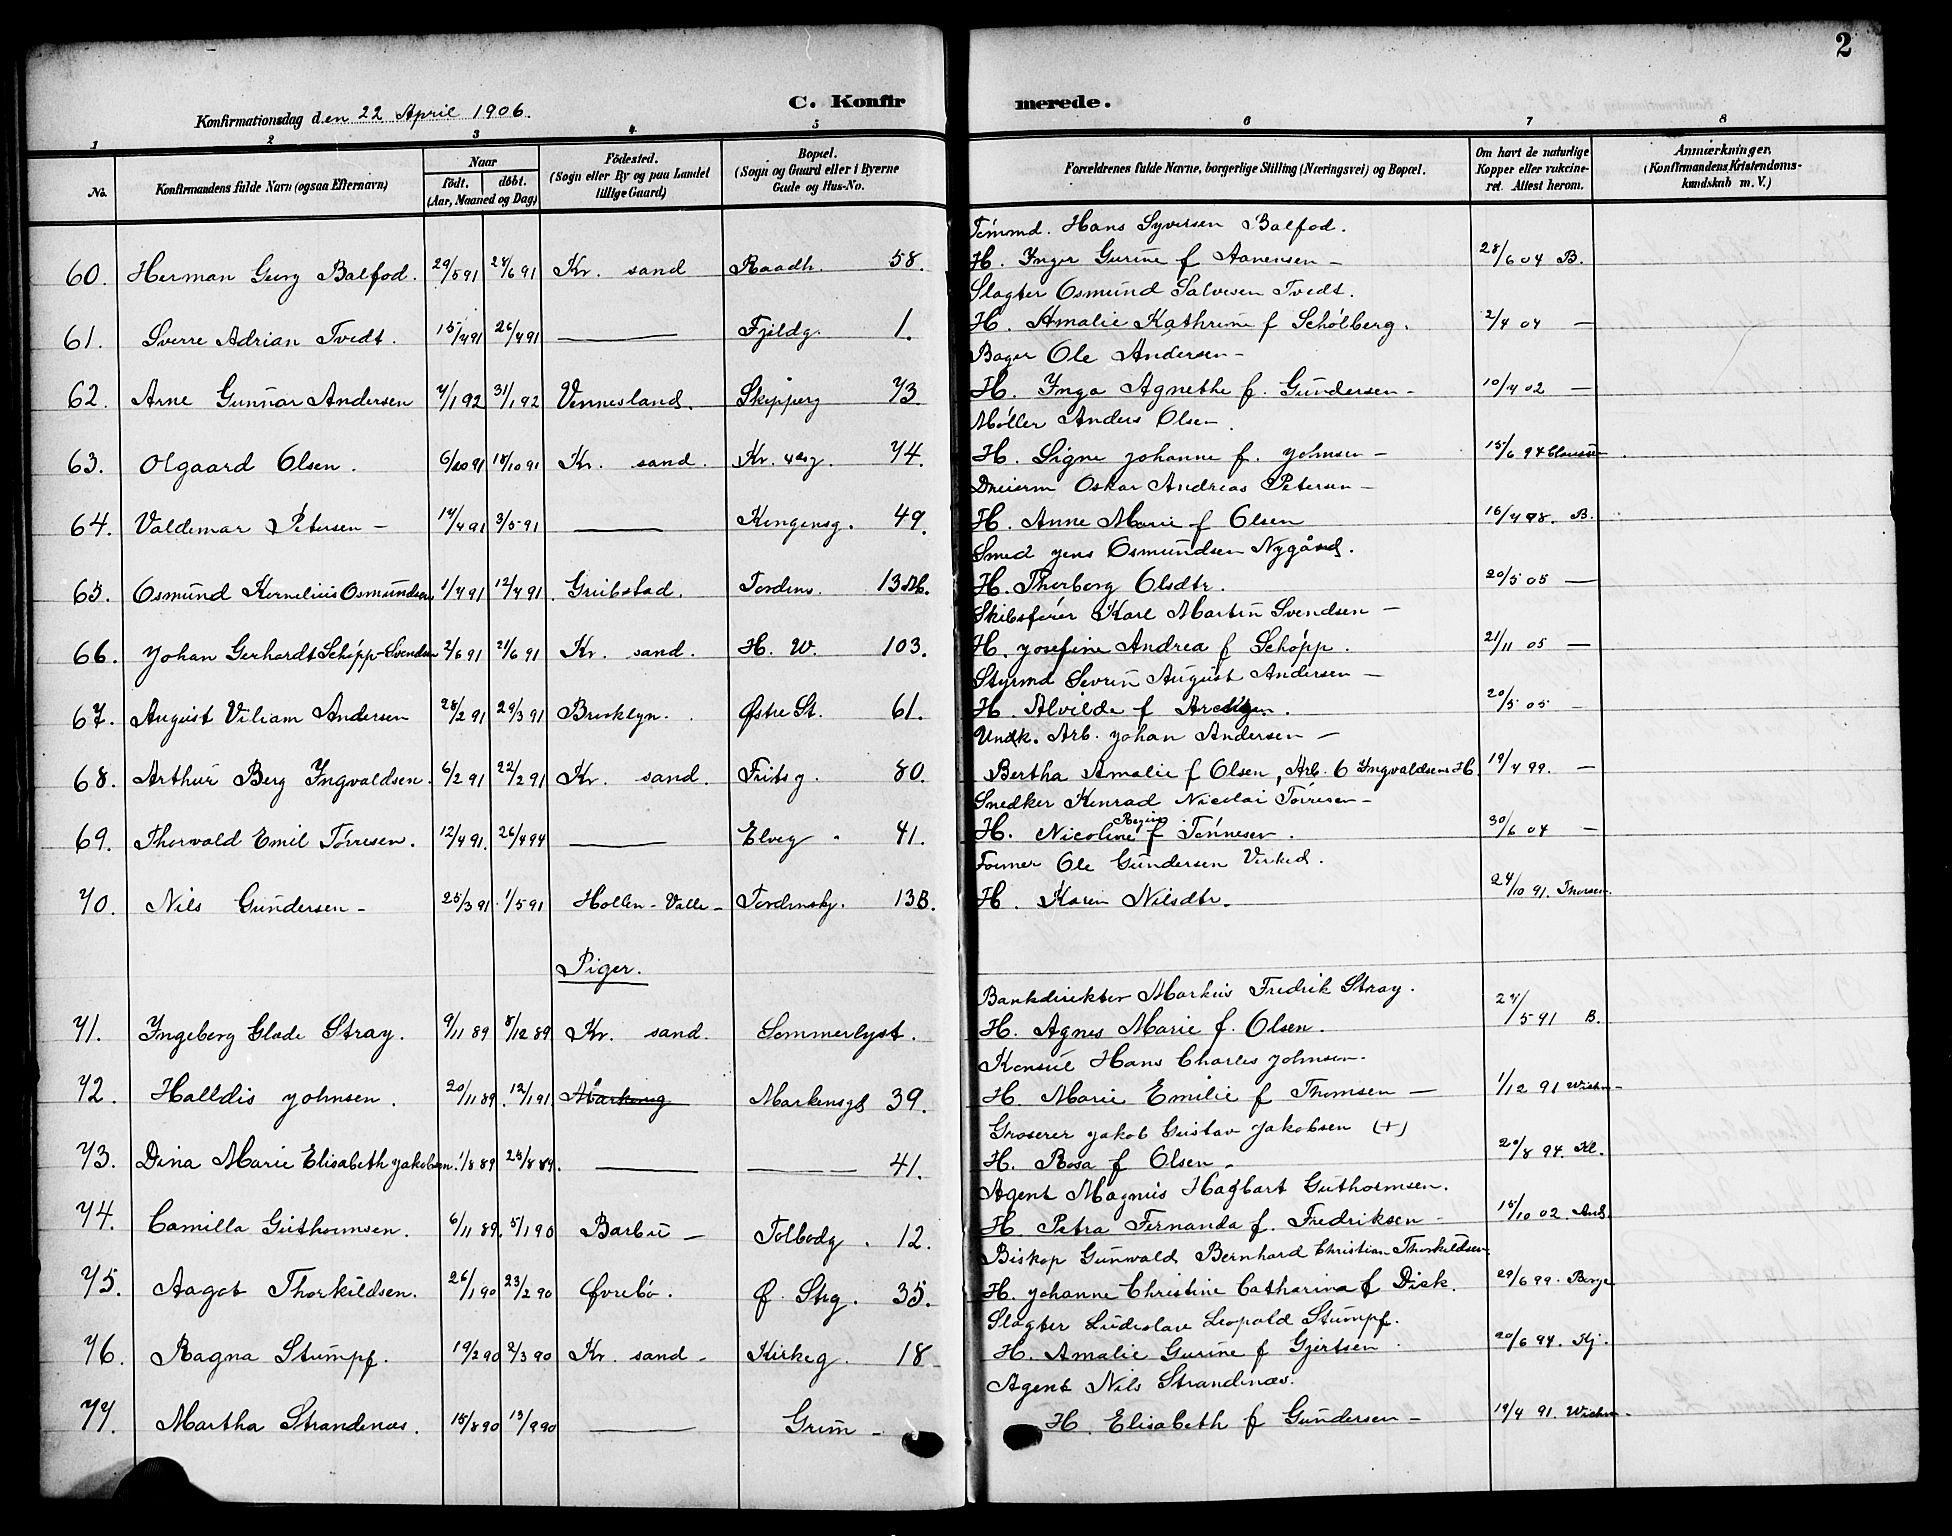 2
Konfirmationsdag den 22 April 1906.
C. Konfirmerede.
1 2 3 4 5 6 7 8
No.
Konfirmandens fulde Navn (ogsaa Efternavn)
Naar
födt. döbt.
(Aar, Maaned og Dag)
Födested.
(Sogn eller By og paa Landet
tillige Gaard)
Bopæl.
(Sogn og Gaard eller i Byerne
Gade og Hus-No.
Forældrenes fulde Navne, borgerlige Stilling (Næringsvei) og Bopæl.
Om havt de naturlige
Kopper eller vakcine-
ret. Attest herom.
Anmærkninger,
(Konfirmandens Kristendoms-
kundskab m. V.)
Tömmd. Hans Syversen Balfod.
60. Herman Georg Balfod. 29/5 91 27/6 91 Kr. sand Raadh. 58. H. Inger Gurine f Aanensen – 28/6 04 B.
Slagter Osmund Salvesen Tvedt.
61. Sverre Adrian Tvedt. 15/4 91 26/4 91 — Fjeldg. 1. H. Amalie Kathrine f Schölberg. 2/4 04 —
Bager Ole Andersen –
62. Arne Gunnar Andersen 7/1 92 31/1 92 Vennesland. Skipperg 73. H. Inga Agnethe f. Gundersen – 10/4 02 —
Møller Anders Olsen.
63. Olgaard Olsen. 6/10 91 18/10 91 Kr. sand. Kr. 74. H. Signe Johanne f. Johnsen – 15/6 94
Dreierm Oskar Andreas Petersen –
64. Valdemar Petersen – 14/4 91 3/5 91 — Kongensg. 49. H. Anne Marie f Olsen 16/4 98. B.
Smed Jens Osmundsen Nygård.
65. Osmund Kornelius Osmundsen 1/4 91 12/4 91 Greibstad. Tordens. 13 H. Thorborg Olsdtr. 20/5 05 —
Skibsfører Karl Martin Svendsen –
66. Johan Gerhardt Schöpp-Svendsen 2/6 91 21/6 91 Kr. sand. H. W. 103. H. Josefine Andrea f Schöpp. 21/11 05 —
Styrmd Severin August Andersen –
67. August Viliam Andersen 28/2 91 29/3 91 Brooklyn. Østre St. 61. H. Alvilde f 20/5 05 –
Undk. Arb. Johan Andersen –
68. Arthur Berg Ingvaldsen. 6/2 91 22/2 91 Kr. sand. Fritsg. 80. Bertha Amalie f Olsen, Arb. O Ingvaldsens H. 19/4 99. —
Snedker Konrad Nicolai Törresen –
69. Thorvald Emil Törresen. 12/4 91. 26/4 94 — Elveg. 41. H. Nicoline Regine f Tönnesen. 30/6 04 —
Former Ole Gundersen Virked.
70. Nils Gundersen – 25/3 91. 1/5 91 Hollen – Valle – Tordenskg. 13B. H. Karen Nilsdtr. 24/10 91. Thorsen.
Piger.
Bankdirektör Markus Fredrik Stray.
71. Ingeborg Glade Stray. 9/11 89 8/12 89 Kr. sand. Sommerlyst. H. Agnes Marie f. Olsen. 27/5 91 B.
Konsul Hans Charles Johnsen.
72. Halldis Johnsen. 20/11 89. 12/1 91. Markensgt 39. H. Marie Emilie f Thomsen — 1/12 91
Groserer Jakob Gustav Jakobsen (+)
73. Dina Marie Elisabeth Jakobsen. 1/8 89 25/8 89. — — 41. H. Rosa f Olsen – 20/8 94. Kl.
Agent Magnus Hagbart Guthormsen.
74. Camilla Guthormsen. 6/11 89. 5/1 90 Barbu – Tolbodg. 12. H. Petra Fernanda f. Fredriksen – 15/10 02.
Biskop Gunvald Bernhard Christian Thorkildsen
75. Aagot Thorkildsen. 26/1 90 23/2 90 Øvrebö. Ø. Stg. 35. H. Johanne Christine Catharina f Disk. 29/6 99.
Slagter Leopold Stumpf.
76. Ragna Stumpf. 19/2 90 2/3 90 Kr. sand – Kirkeg. 18 H. Amalie Gurine f Gjertsen. 20/6 94. Kj.
Agent Nils Strandenæs.
77. Martha Strandenæs. 15/8 90 13/9 90 — Grim – H. Elisabeth f Gundersen – 19/4 91.